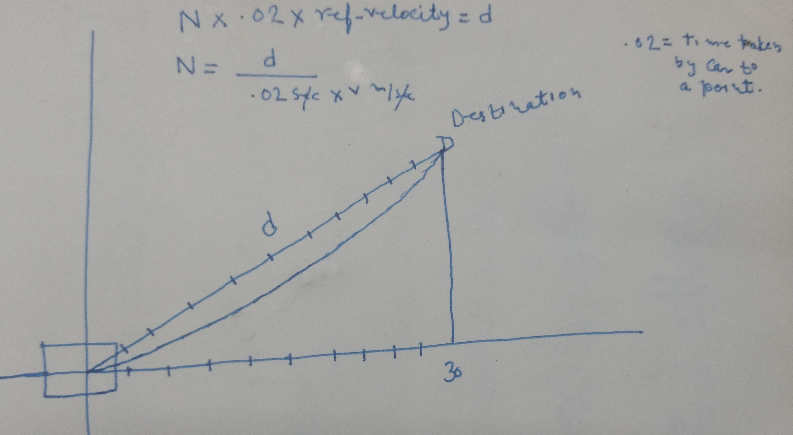 N x .02 x ref-velocity = d
N = d / .02 s/c x v m/s/c
.02 = Time taken
by car to
a point.
Destination
D
d
30